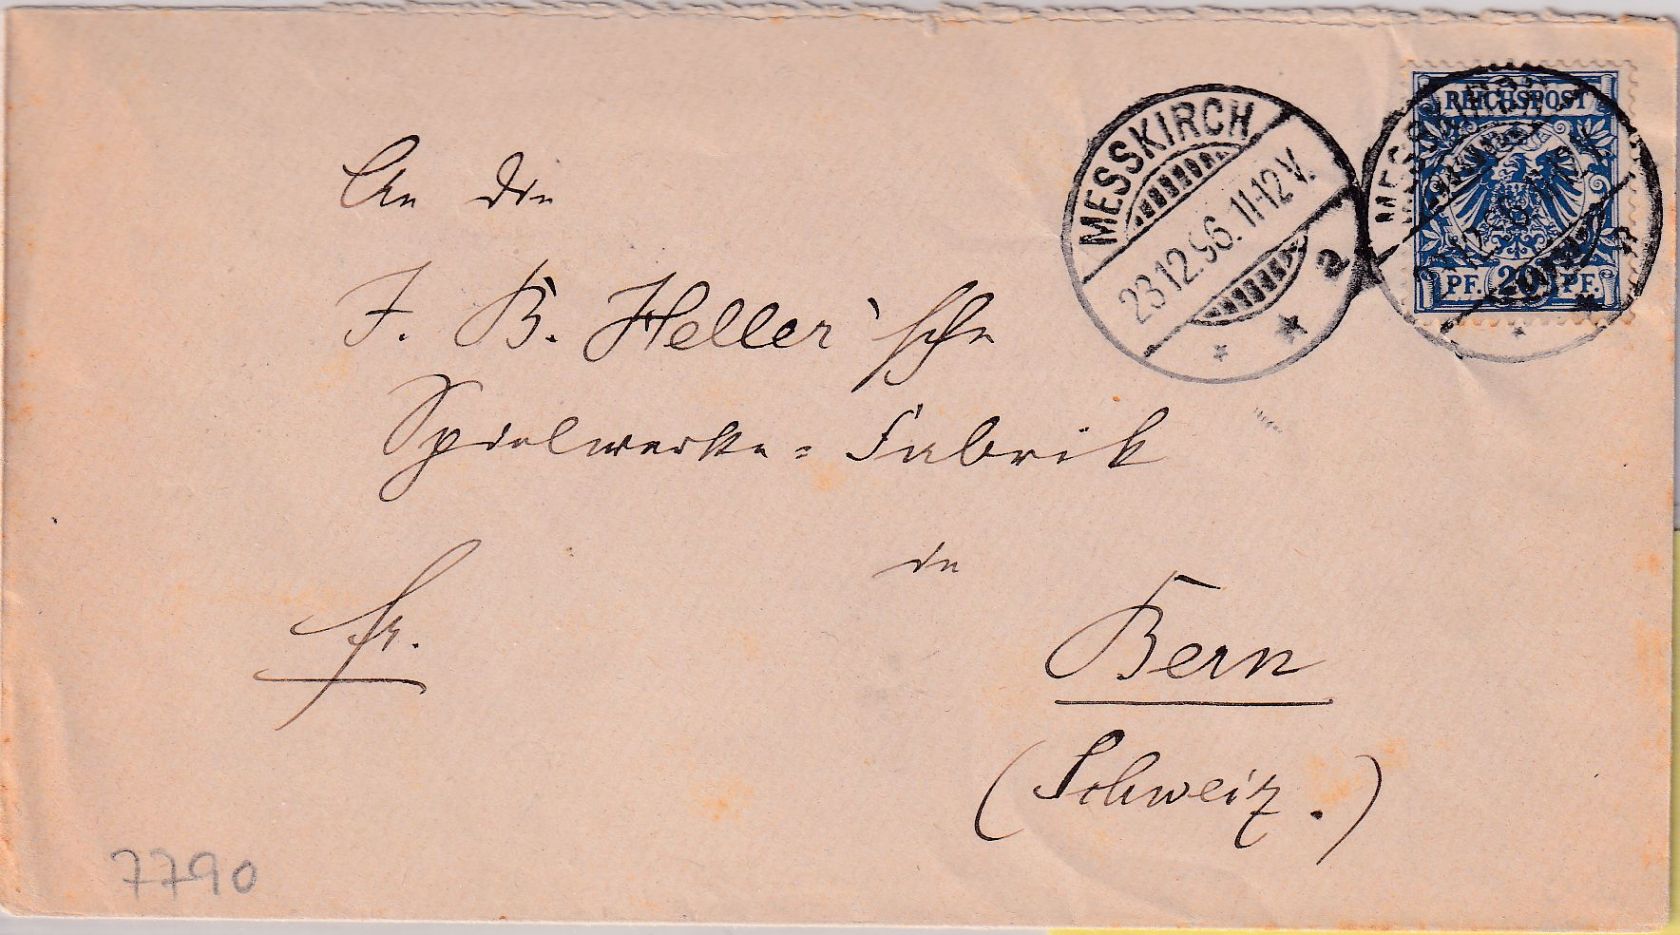 MESSKIRCH
23.12.96.11-12V.
a
REICHSPOST
PF. 20 PF.
MESSKIRCH
An die
J. B. Heller'sche
Spielwerke-Fabrik
in
fr.
Bern
(Schweiz.)
7790